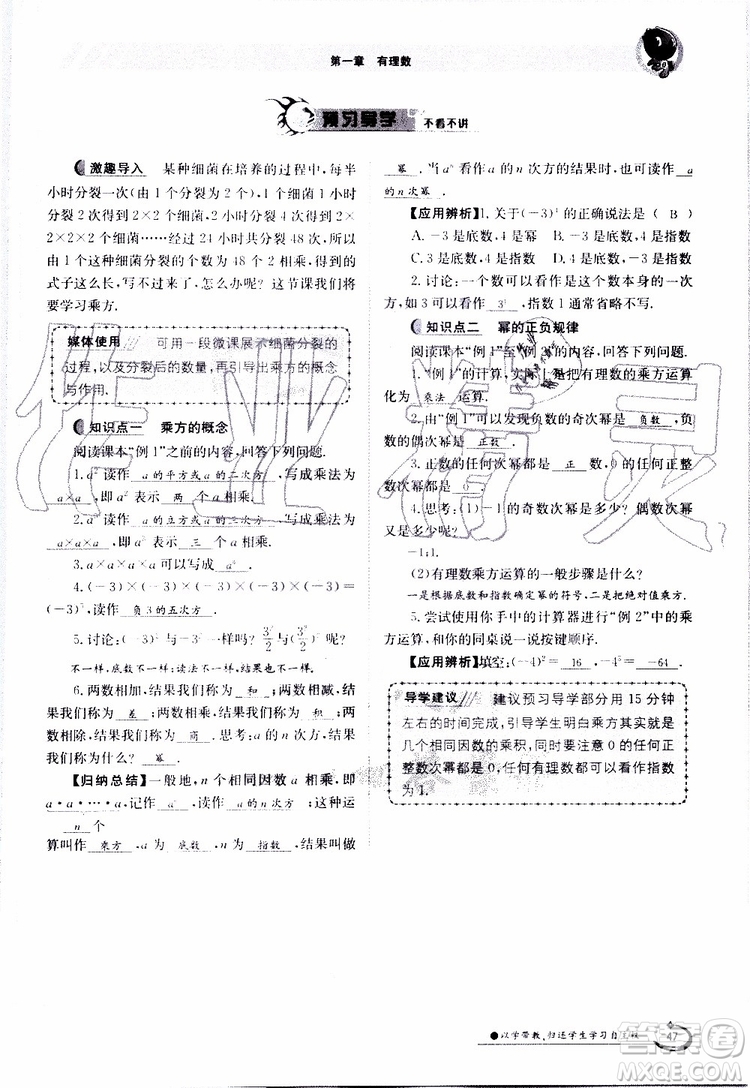 第一章 有理数
预习导学 不看不讲
激趣导入 某种细菌在培养的过程中,每半
小时分裂一次(由 1 个分裂为 2 个),1 小时
分裂 2 次得到 2×2 个细菌,
2×2×2 个细菌……经过 24 小时共分裂 48 次,所以
由 1 个这种细菌
式子这么长,写不过来怎么办呢?这节课我们将
要学习乘方.
媒体使用 可用一段微课展示细菌分裂的
过程,以及分裂后的数量,再引导出乘方的概念
与作用.
知识点一 乘方的概念
阅读课本“例 1”之前的内容,回答下列问题.
1.a²读作 a的平方或a的二次方,写成乘法为
a×a,即 a²表示 两 个 a 相乘.
2.a³读作 a的立方或a的三次方,写成乘法为
a×a×a,即 a³表示 三 个 a 相乘.
3.a×a×a×a 写成 a⁴.
4.(-3)×(-3)×(-3)×(-3)×(-3)写成
,读作 负3的五次方.
5.讨论:
不一样,底数不一样;读法不一样;结果也不一样.
6.两数相加,结果我们称为 和;两数相减,结
果我们称为 差;两数相乘,结果我们称为 积;两
数相除,结果我们称为 商.思考:乘方运算的结果
我们称为什么? 幂
【归纳总结】一般地,n 个相同因数 a 相乘,即
a·a·…·a,记作 aⁿ,读作 a的n次方,这种运
n 个
算叫作 乘方,a 为 底数,n 为 指数,结果叫做
幂.当 aⁿ看作 a 的 n 次方的结果时,也可读作 a
的n次幂.
【应用辨析】1.关于 的正确说法是( B )
A.-3 是底数, B.-3 是底数,
C.3 是底数, D.3 是底数,
2.讨论:一个数可以看作这个数本身的一次
方,如 3 可以看作 3¹,指数 1 通常省略不写.
知识点二 幂的正负规律
阅读课本“例 1”至“例 2”的内容,回答下列问题.
1.“例 1”的计算,实际上是把有理数的乘方运算
化为 乘法 运算.
2.由“例 1”可以发现负数的奇次幂是 负数,负
数的偶次幂是 正数.
3.正数的任何次幂都是 正 数,0 的任何正整
数次幂都是 0.
4.思考:(1)-1 的奇数次幂是多少?偶数次幂
是多少呢?
-1;1.
(2)有理数乘方运算的一般步骤是什么?
一是根据底数和指数确定幂的符号,二是把绝对值乘方.
5.尝试使用你手中的计算器进行“例 2”中的乘
方运算,和你的同桌说一说按键顺序.
【应用辨析】填空:(-4)²= 16, = -64.
导学建议 建议预习导学部分用 15 分钟
左右的时间完成,引导学生明白乘方其实就是
几个相同因数的乘积,同时要注意 0 的任何正
整数次幂都是 0,任何数都可以看作指数
为 1.
以学带教,归还学生学习自主权
47